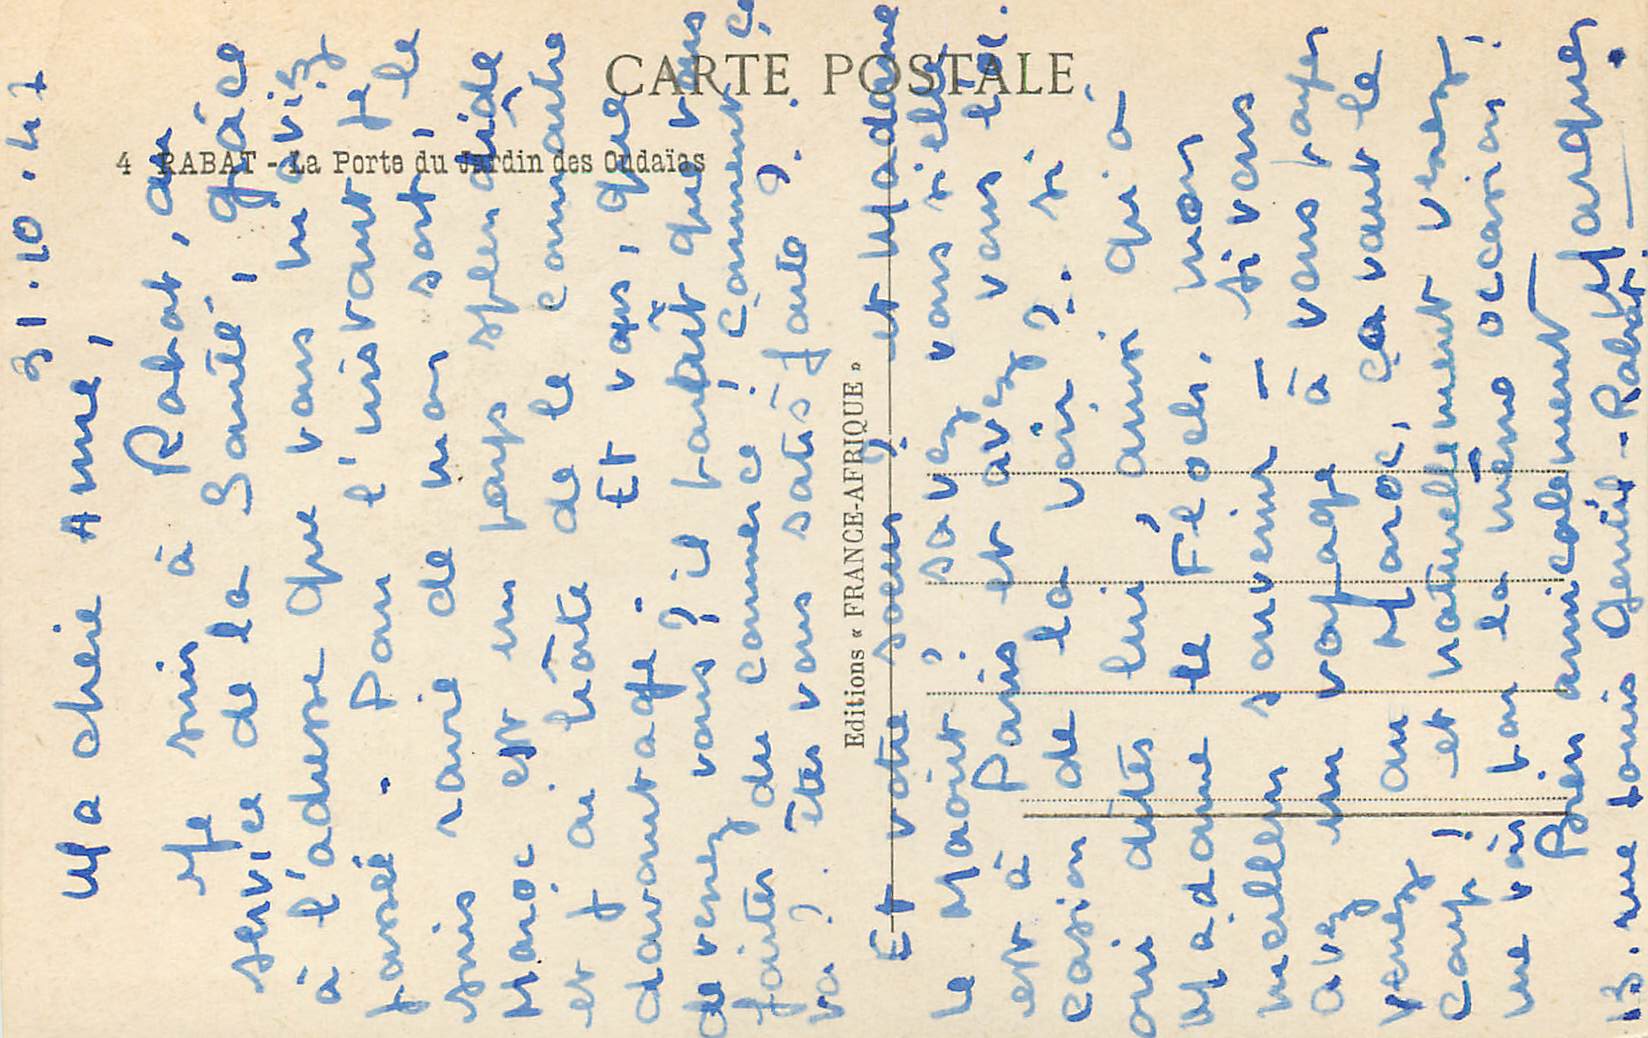 CARTE POSTALE
4 RABAT - La Porte du Jardin des Oudaïas
Editions « FRANCE-AFRIQUE »
31.10.47
Ma chère Anne,
Me suis à Rabat, au
service de la Santé, grâce
à l'adresse que vous m'aviez
passée. Pour l'instant je
suis ravie de mon sort, le
Maroc est un pays splendide
et j'ai hâte de le connaître
davantage. Et vous, que
devenez vous ? il paraît que vous
faites du commerce ! comment ça
va ? êtes vous satisfaite ?.
Et votre soeur ? et Madame
le Maoût ? savez vous si elle
est à Paris et avez vous l'
casion de la voir ?. si
oui dites lui, ainsi qu'à
Madame le Floch, mon
meilleur souvenir – si vous
avez un voyage à vous payer
venez au Maroc, ça vaut le
coup ! et naturellement venez
me voir par la même occasion !
Bien amicalement
Marquer
13. rue Louis Gentil - Rabat.